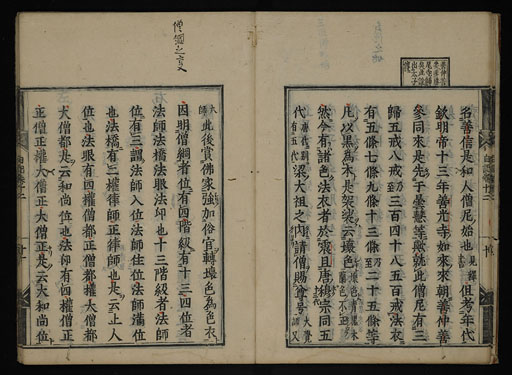 名善信是和人僧尼始也見釋書但考年代
欽明帝十三年善光寺如來來朝仲善
參同來是先于曇慧等歟就此僧尼有三
歸五戒八戒乃至三百四十八五百戒法衣
有五條七條九條十三條乃至二十五條等
凡以黑爲本是袈裟云壞色
然今有諸色法衣者於震旦唐
代梁大祖之内請僧賜尊号
大師此後賞佛家強加俗官轉壞色爲色衣
因明僧綱者位有四階級有十三四位者
法師法橋法眼法印也十三階級者法師
位有三謂法師入位法師住位法師滿位
也法橋有二權律師正律師也是云上人
位也法眼有四權僧都權大僧都
大僧都是云和尚位也法印有四權僧正
正僧正權大僧正大僧正是云大和尚位
僧綱之支